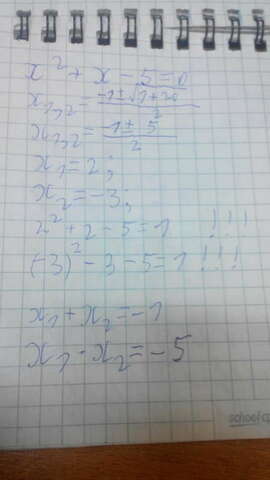 x² + x - 5 = 0
x₁,₂ = (-1 ± √(1+20)) / 2
x₁,₂ = (-1 ± 5) / 2
x₁ = 2;
x₂ = -3;
2² + 2 - 5 = 1 !!!
(-3)² - 3 - 5 = 1 !!!
x₁ + x₂ = -1
x₁ · x₂ = -5
school